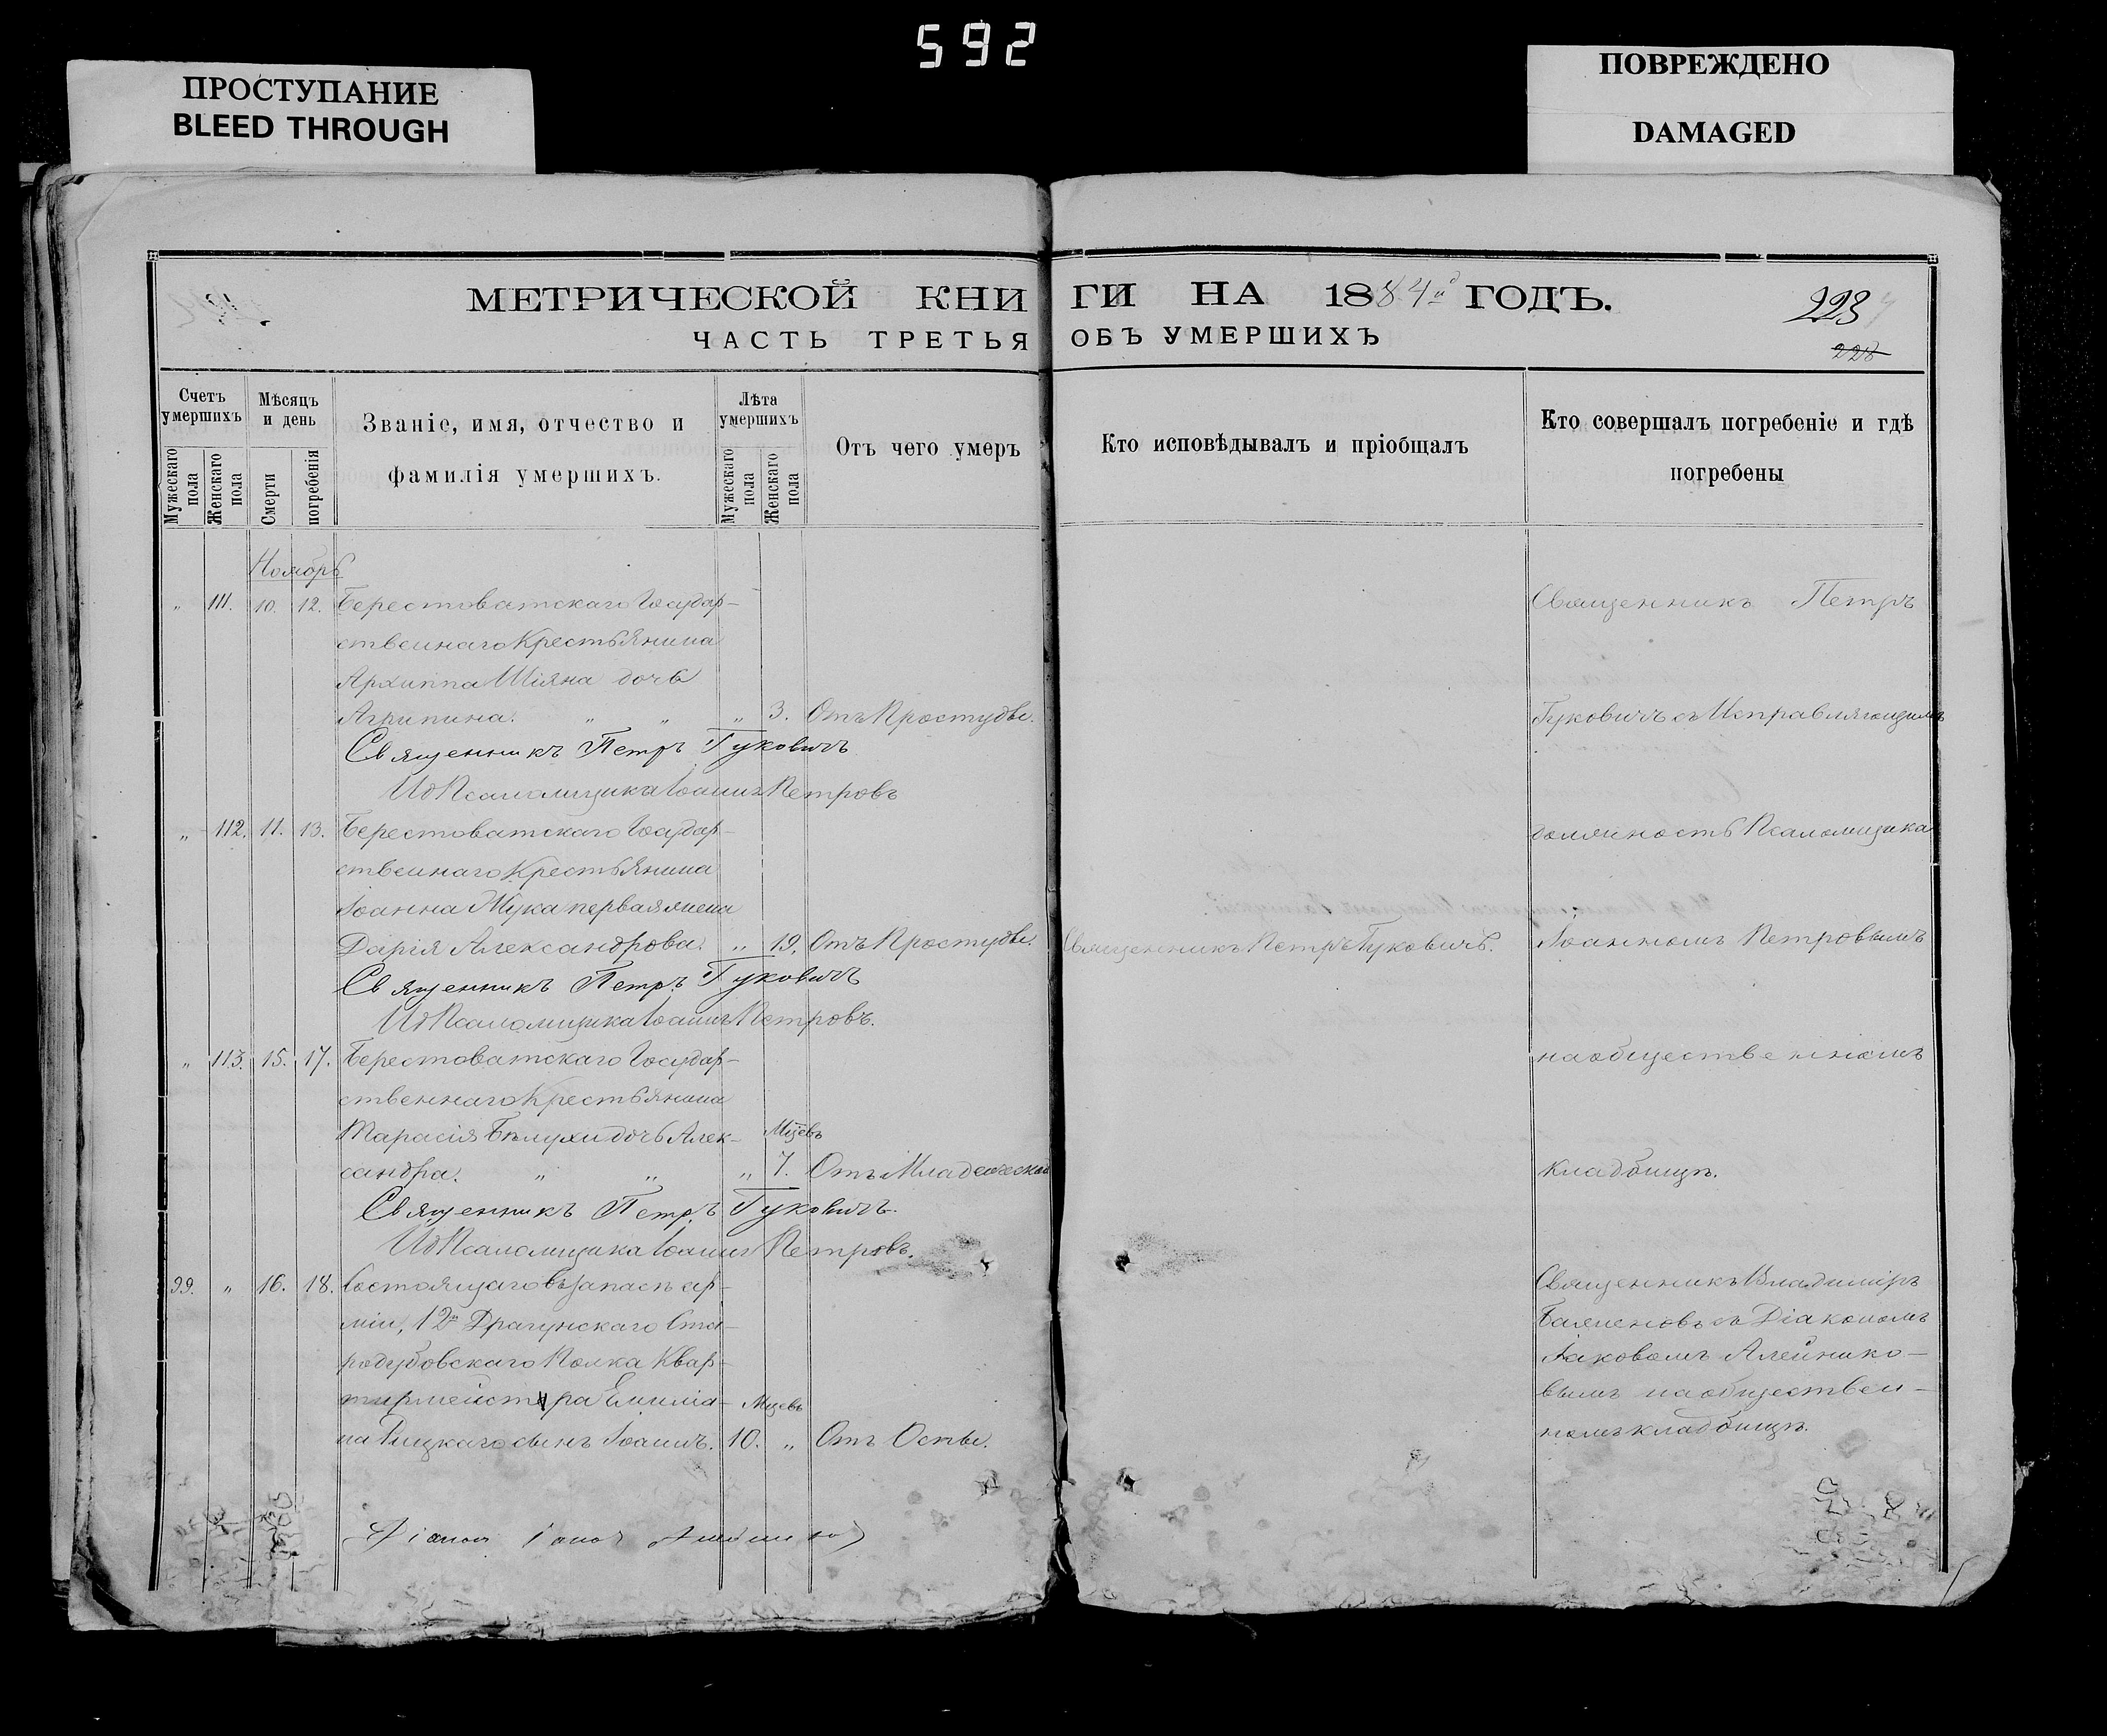 592
ПРОСТУПАНИЕ
BLEED THROUGH
ПОВРЕЖДЕНО
DAMAGED
МЕТРИЧЕСКОЙ КНИГИ НА 1884й ГОДЪ.
223
228
ЧАСТЬ ТРЕТЬЯ ОБЪ УМЕРШИХЪ
Счетъ умершихъ
Мужескаго пола
Женскаго пола
Мѣсяцъ и день
Смерти
погребенія
Званіе, имя, отчество и
фамилія умершихъ.
Лѣта умершихъ
Мужескаго пола
Женскаго пола
Отъ чего умеръ
Кто исповѣдывалъ и пріобщалъ
Кто совершалъ погребеніе и гдѣ
погребены
Ноябрь
„ 111. 10. 12. Берестоватскаго Государ-
ственнаго Крестьянина
Архиппа Шіяна дочь
Агрипина. „ „ „ 3. Отъ Простуды.
Священникъ Петръ Гуковичъ
ИД Псаломщика Іоаннъ Петровъ
Священникъ Петръ
Гуковичъ съ Исправляющимъ
„ 112. 11. 13. Берестоватскаго Государ-
ственнаго Крестьянина
Іоанна Жука первая жена
Дарія Александрова. „ 19. Отъ Простуды. Священникъ Петръ Гуковичъ.
Священникъ Петръ Гуковичъ
ИД Псаломщика Іоаннъ Петровъ.
должность Псаломщика
Іоанномъ Петровымъ
„ 113. 15. 17. Берестоватскаго Государ-
ственнаго Крестьянина
Тарасія Бѣлухи дочь Алек- Мцевъ
сандра. „ „ „ 7. Отъ Младенческой
Священникъ Петръ Гуковичъ.
ИД Псаломщика Іоаннъ Петровъ.
на общественномъ
кладбищѣ.
99. „ 16. 18. Состоящаго въ запасѣ ар-
міи, 12го Драгунскаго Ста-
родубовскаго Полка Квар-
тирмейстера Емиліа- Мцевъ
на сынъ Іоаннъ. 10. „ Отъ Оспы.
Священникъ Владиміръ
Баженовъ съ Діакономъ
Іаковомъ Алейнико-
вымъ на обществен-
номъ кладбищѣ.
Діаконъ Іаковъ Алейниковъ